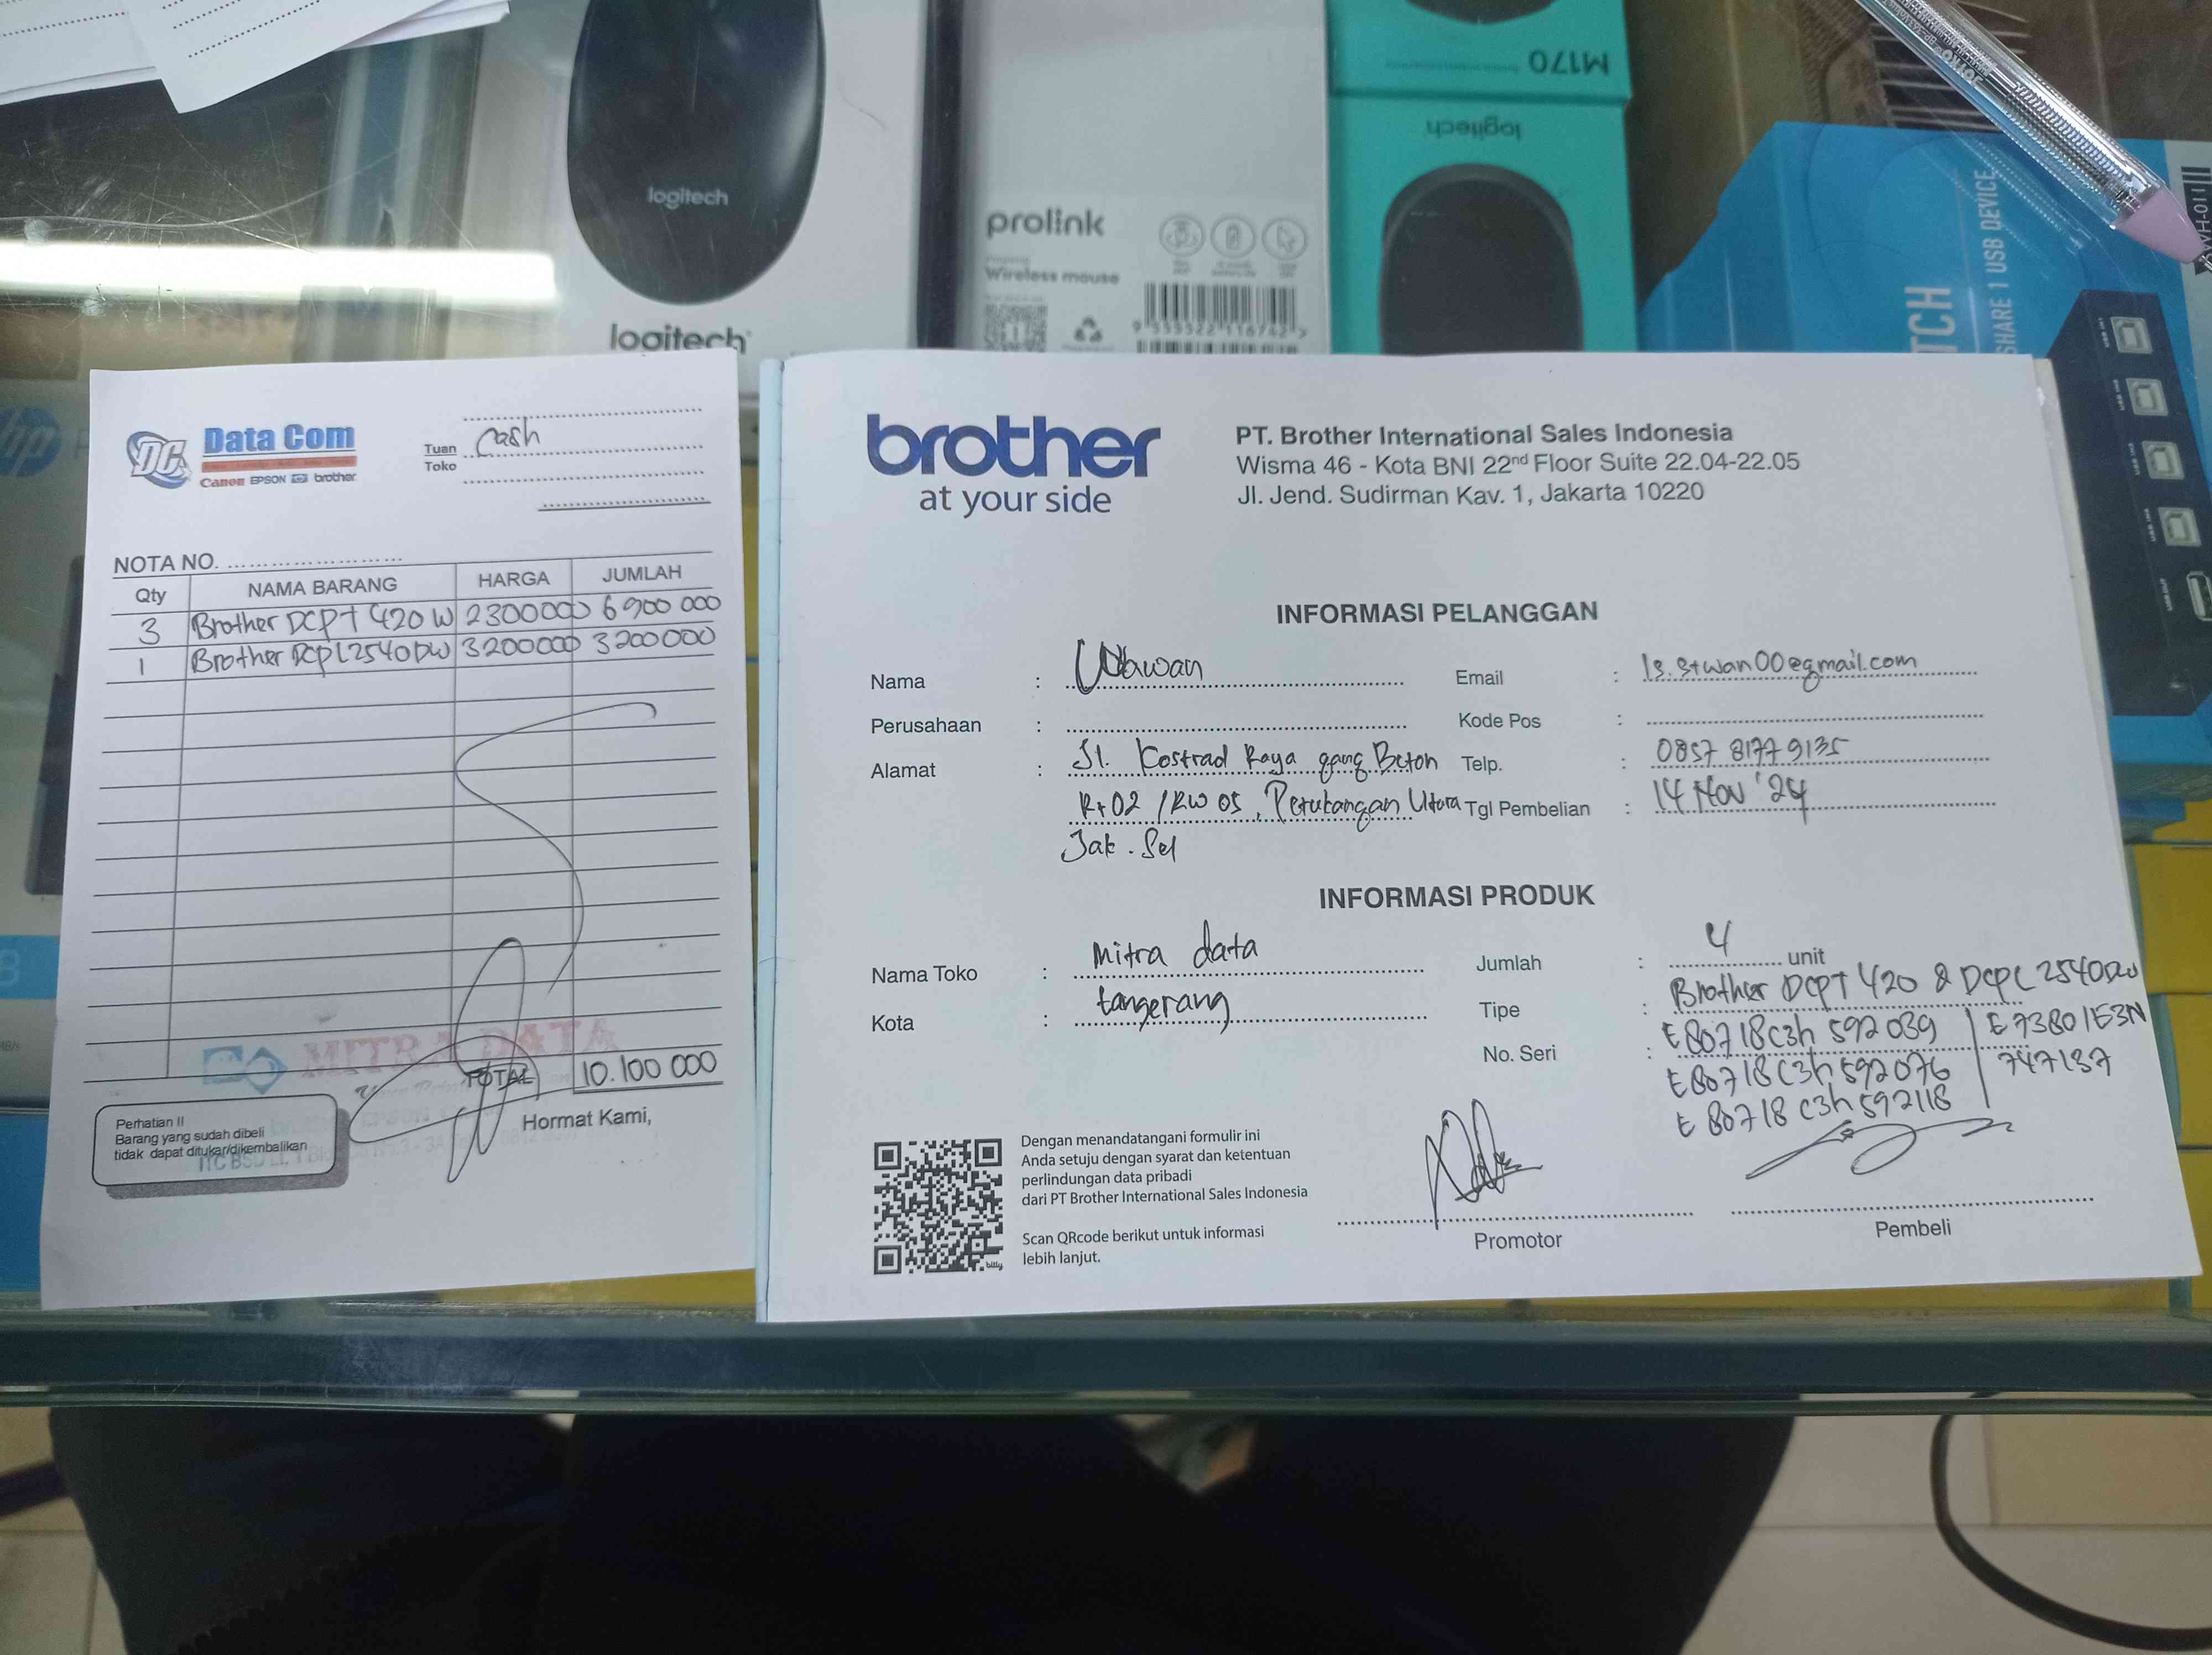 logitech
logitech
prolink
Wireless mouse
9 555522 116742 >
M170
logitech
TCH
SHARE 1 USB DEVICE
hp
DC
Data Com
Canon EPSON brother
Tuan
Toko
Cash
NOTA NO.
Qty NAMA BARANG HARGA JUMLAH
3 Brother DCPT 420 W 2300000 6900 000
1 Brother DCPL2540DW 3200000 3200000
MITRA DATA
TOTAL 10.100 000
Hormat Kami,
Perhatian !!
Barang yang sudah dibeli
tidak dapat ditukar/dikembalikan
brother
at your side
PT. Brother International Sales Indonesia
Wisma 46 - Kota BNI 22nd Floor Suite 22.04-22.05
Jl. Jend. Sudirman Kav. 1, Jakarta 10220
INFORMASI PELANGGAN
Nama : Wawan
Email : ls.stwan00@gmail.com
Perusahaan :
Kode Pos :
Alamat : Jl. Kostrad Raya gang Beton
Rt 02 / RW 05, Petukangan Utara
Jak. Sel
Telp. : 0857 8177 9135
Tgl Pembelian : 14 Nov '24
INFORMASI PRODUK
Nama Toko : Mitra data
Kota : tangerang
Jumlah : 4 unit
Tipe : Brother DCPT 420 & DCPL 2540DW
No. Seri : E80718C3h 592039 | E73801E3N
E80718C3h592076 | 747137
E80718C3h592118
Dengan menandatangani formulir ini
Anda setuju dengan syarat dan ketentuan
perlindungan data pribadi
dari PT Brother International Sales Indonesia
Scan QRcode berikut untuk informasi
lebih lanjut.
bitly
Promotor
Pembeli